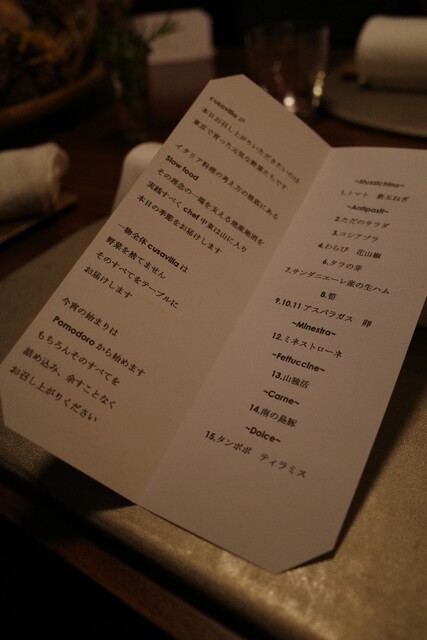 cusavilla の
本日お召し上がりいただきたいのは
東京で育った元気な野菜たちです
イタリア料理の考え方の根底にある
Slow food
その理念の一端を支える地産地消を
実践すべく chef 中東は山に入り
本日の季節をお届けします
一物全体 cusavilla は
野菜を捨てません
そのすべてをテーブルに
お届けします
今宵の始まりは
Pomodoro から始めます
もちろんそのすべてを
詰め込み、余すことなく
お召し上がりください
~Stuzzichino~
1.トマト 新玉ねぎ
~Antipasti~
2.ただのサラダ
3.コシアブラ
4.わらび 花山椒
6.タラの芽
7.サンダニエーレ産の生ハム
8.筍
9.10.11 アスパラガス 卵
~Minestra~
12.ミネストローネ
~Fettuccine~
13.山独活
~Carne~
14.南の島豚
~Dolce~
15.タンポポ ティラミス